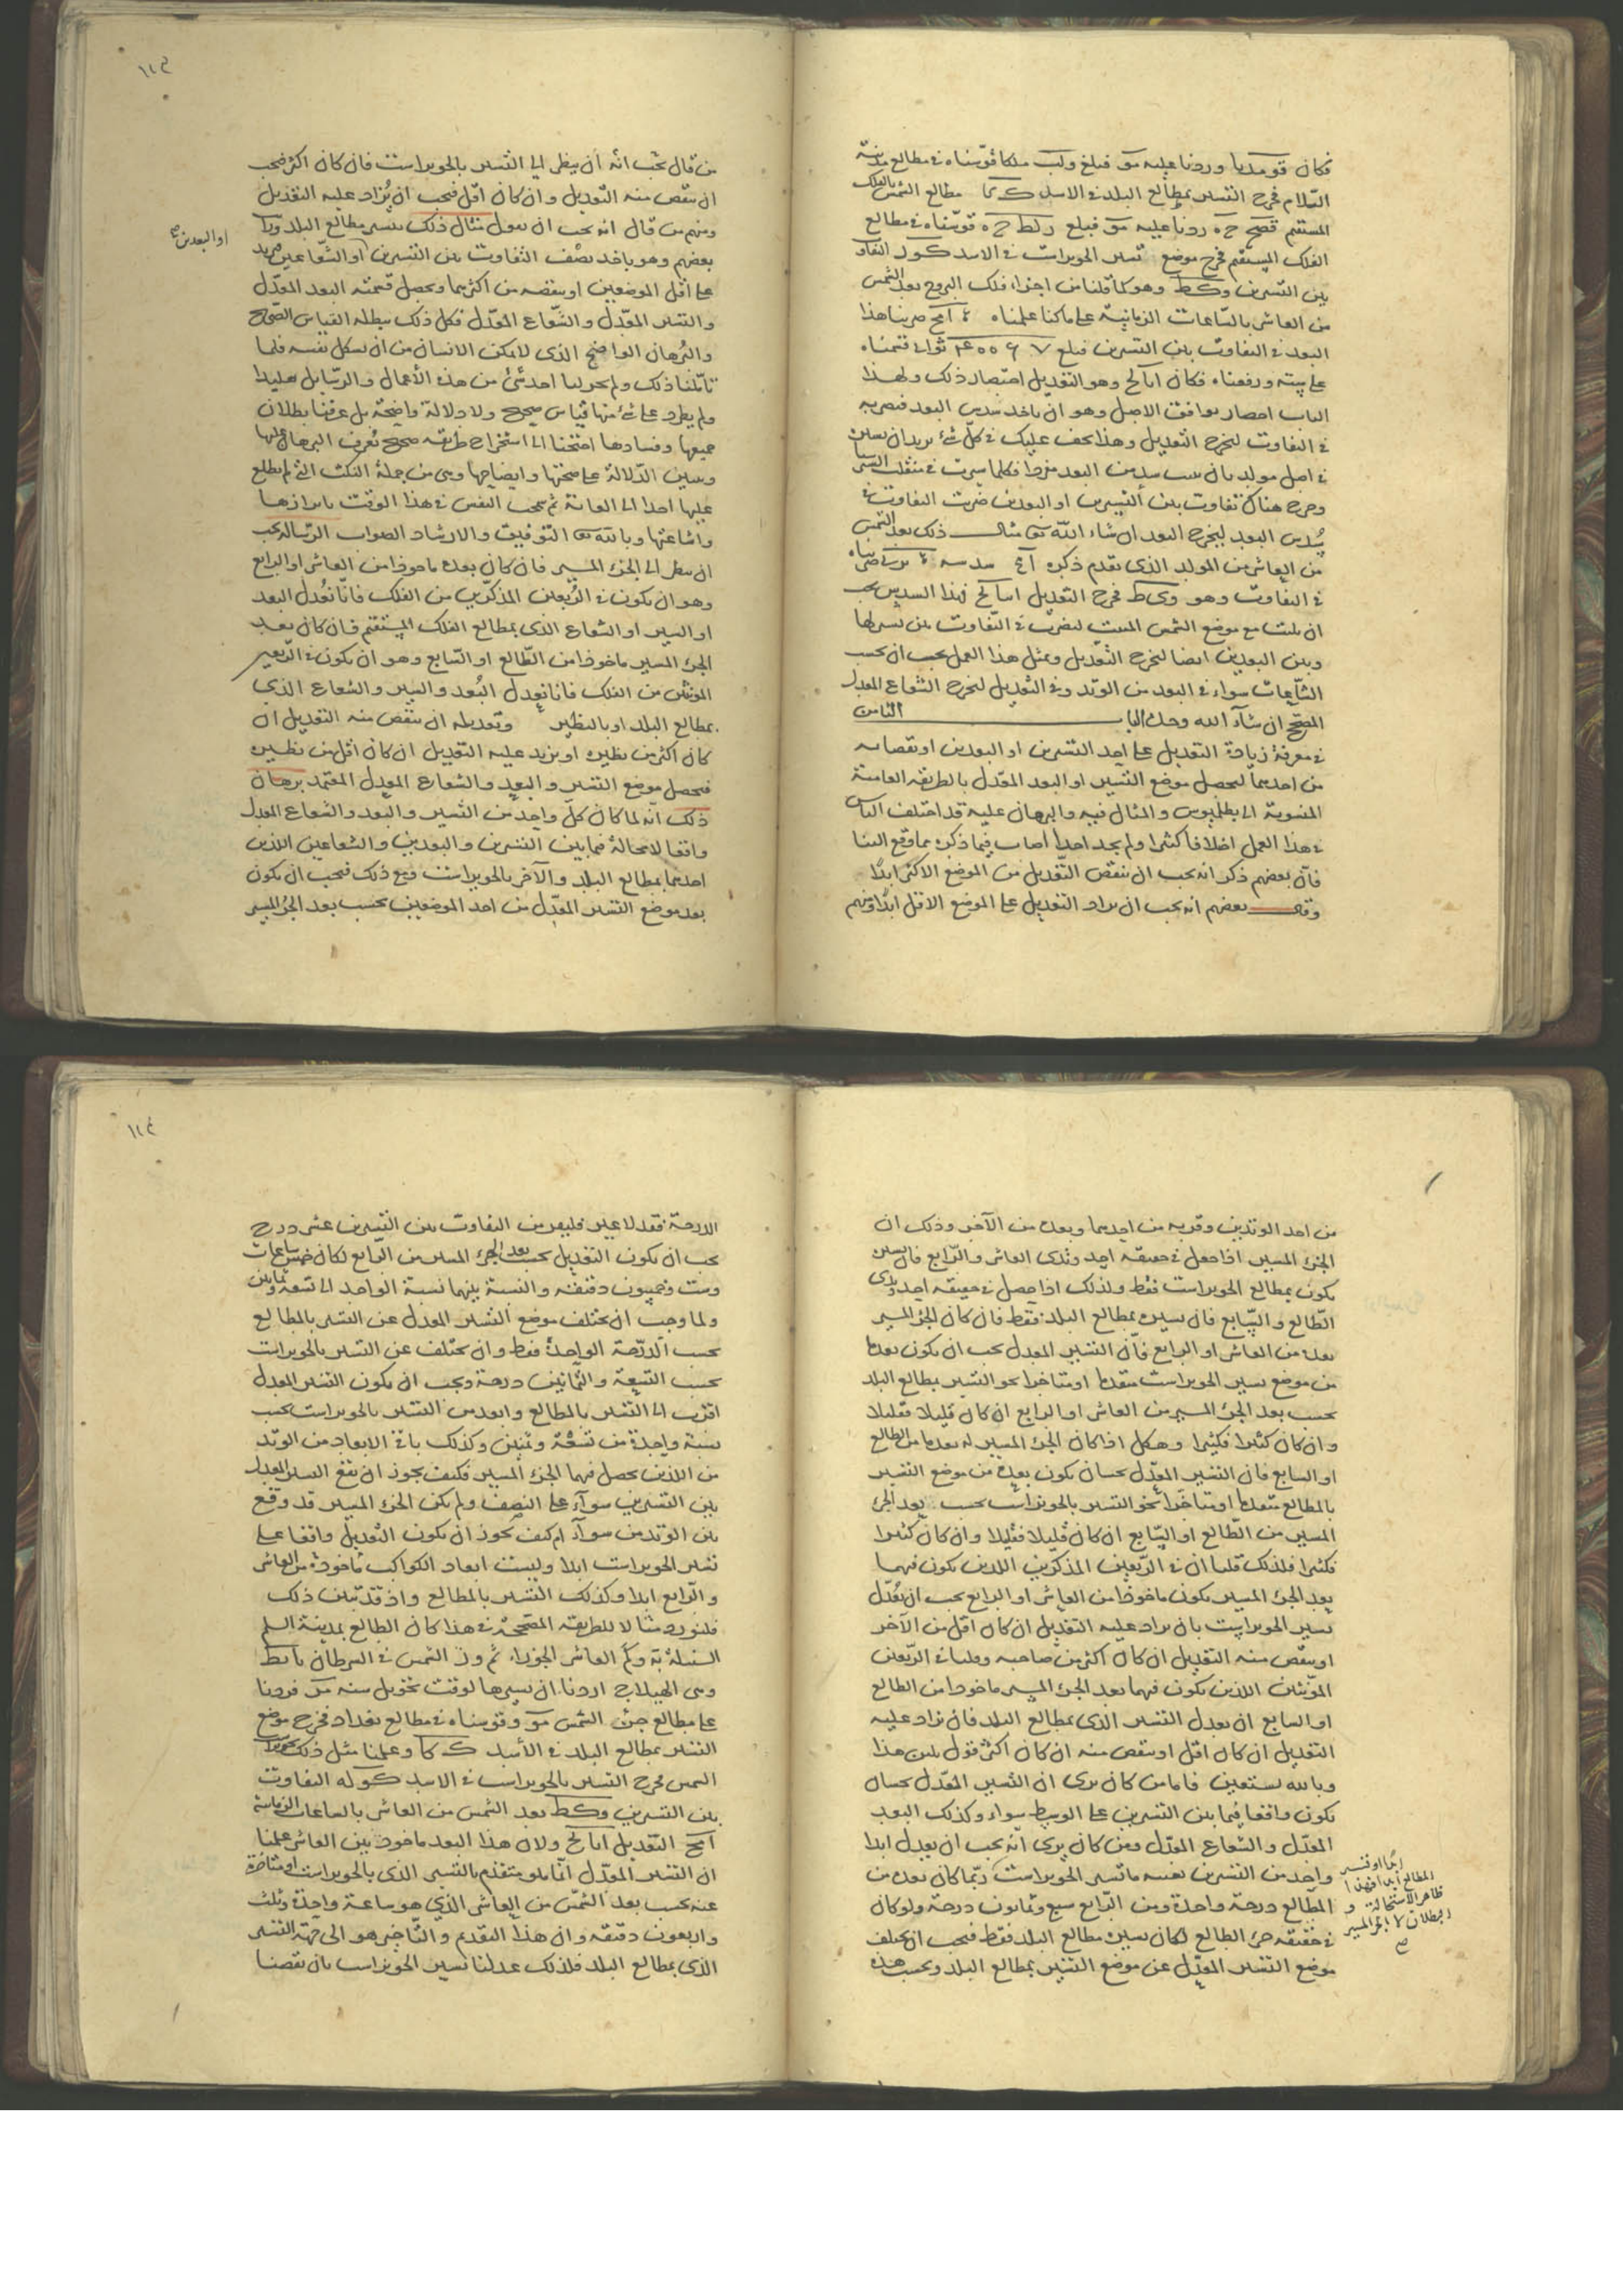 فكان ورددنا عليه مو فبلغ قوّسناه في مطالع مدينة
السّلام فخرج التسير بمطالع البلد في الاسد ك كا مطالع الشمس بالفلك
المستقيم قصح ح ه رددنا عليه مو فبلغ رلط ح ه قوّسناه في مطالع
الفلك المستقيم فخرج موضع تسير الجوبراست في الاسد التفاوت
بين التسيرين و كط وهو كما قلنا من اجزاء فلك البروج بعد الشمس
من العاشر بالساعات الزمانية على ما كنا علمناه ضربنا هذا
البعد في التفاوت بين التسيرين فبلغ ثواني قسمناه
على ستة ورفعناه فكان وهو التعديل اختصار ذلك ولهذا
الباب اختصار يوافق الاصل وهو ان ياخذ سدس البعد فنضربه
في التفاوت ليخرج التعديل وهذا يخف عليك في كلّ شئ يريد ان يسير
في اصل مولد بان سدس البعد مفردا فكلما سيرت في
وخرج هناك تفاوت بين التسيرين او البعدين ضربت التفاوت في
سُدس البعد ليخرج البعد ان شاء الله تع مثال ذلك بعد الشمس
من العاشر من المولد الذي تقدم ذكره سدسه ضربناه
في التفاوت وهو و كط فخرج التعديل فهذا السدس يجب
ان يثبت مع موضع الشمس المثبت ليضرب في التفاوت بين تسيرها
وبين البعدين ايضا ليخرج التعديل ومثل هذا العمل يجب ان يحسب
الشّعاعات سواء في البعد من الوتد وفي التعديل ليخرج الشعاع المعدل
المصحّح ان شاء الله وحده الباب الثامن
في معرفة زيادة التعديل على احد التسيرين او البعدين او نقصانه
من احدهما ليحصل موضع التسير او البعد المعدّل بالطريقة العامية
المنسوبة الى بطلميوس والمثال فيه والبرهان عليه قد اختلف الناس
في هذا العمل اختلافا كثيرا ولم يجد احدا اصاب فيما ذكره مما وقع الينا
فانّ بعضهم ذكر انه يجب ان ينقص التعديل من الموضع الاكثر ابدًا
وقال بعضهم انه يجب ان يزاد التعديل على الموضع الاقل ابدًا ومنهم
١١٣
من قال يجب انه ان ينظر الى التسير بالجوبراست فان كان اكثر فيجب
ان ينقص منه التعديل وان كان اقل فيجب ان يُزاد عليه التعديل
ومنهم من قال انه يجب ان يعول مثال ذلك بتسير مطالع البلد
بعضهم وهو ياخذ نصف التفاوت بين التسيرين او الشعاعين فيزيد
او البعدين صح
على اقل الموضعين او ينقصه من اكثرهما ويحصل قسمته البعد المعدّل
والتسير المعدّل والشّعاع المعدّل فكل ذلك يبطله القياس الصحيح
والبُرهان الواضح الذي لا يمكن الانسان من ان يشكل نفسه فلما
تاملنا ذلك ولم يحولنا احد شئ من هذه الأعمال والرسايل
ولم يطرد على شئ منها قياس صحيح ولا دلالة واضحة بل عرفنا بطلان
جميعها وفسادها احتجنا الى استخراج طريقه صحيح نُعرف البرهان عليها
وتبيين الدّلالة على صحّتها وايضاحها وهي من جملة النكت التي لم يطلع
عليها احدا الى الغاية ثم النفس في هذا الوقت بابرازها
واشاعتها وبالله تع التّوفيق والارشاد الصواب الرّسالة يجب
ان ينظر الى الجزء المسير فان كان بعده ماخوذا من العاشر او الرابع
وهو ان يكون في الرُبعين المذكّرين من الفلك فانّا نُعدل البعد
او السير او الشعاع الذي بمطالع الفلك المستقيم فان كان بعد
الجزء المسير ماخوذا من الطّالع او السّابع وهو ان يكون في الرّبعين
المونثين من الفلك فانا نعدل البُعد والسير والشعاع الذي
بمطالع البلد او بالنظير وتعديله ان ينقص منه التعديل ان
كان اكثر من نظيره او يزيد عليه التعديل ان كان اقل من نظيره
فيحصل موضع التسير والبعد والشعاع المعدل المعتمد برهان
ذلك انّه لما كان كلّ واحد من التسير والبعد والشعاع المعدل
واقعا لا محالة فيما بين التسيرين والبعدين والشعاعين اللذين
احدهما بمطالع البلد والآخر بالجوبراست فمع ذلك فيجب ان يكون
بعد موضع التسير المعدّل من احد الموضعين بحسب بعد الجزء المسير
من احد الوتدين وقربه من احدهما وبعده من الآخر وذلك ان
الجزء المسير اذا حصل في حقيقه احد وتدي العاشر والرّابع فان تسيره
يكون بمطالع الجوبراست فقط ولذلك اذا حصل في حقيقه احد وتدي
الطّالع والسّابع فان تسيره بمطالع البلد فقط فان كان الجزء المسير
بعده من العاشر او الرابع فانّ التسير المعدل يجب ان يكون بعده
من موضع تسير الجوبراست متقدما او متاخرا نحو التسير بمطالع البلد
بحسب بعد الجزء المسير من العاشر او الرابع ان كان قليلا فقليلا
وان كان كثيرا فكثيرا وهكذا اذا كان الجزء المسير له بعدها من الطالع
او السابع فان التسير المعدّل يجب ان يكون بعده من موضع التسير
بالمطالع متقدما او متاخّرا نحو التسير بالجوبراست بحسب بعد الجزء
المسير من الطّالع او السّابع ان كان قليلا فقليلا وان كان كثيرا
فكثيرا فلذلك قلنا ان في الرّبعين المذكّرين اللذين يكون فيهما
بعد الجزء المسير يكون ماخوذا من العاشر او الرابع يجب ان يُعدّل
تسير الجوبراست بان يزاد عليه التعديل ان كان اقل من الآخر
او ينقص منه التعديل ان كان اكثر من صاحبه وقلنا في الرّبعين
المونّثين اللذين يكون فيهما بعد الجزء المسير ماخوذا من الطالع
او السابع ان يعدل التسير الذي بمطالع البلد فان يزاد عليه
التعديل ان كان اقل او ينقص منه ان كان اكثر فقول يلين هذا
وبالله نستعين فاما من كان يرى ان التسير المعدّل يجب ان
يكون واقعا فيما بين التسيرين على الوسط سواء وكذلك البعد
المعدّل والشعاع المعدّل ومن كان يرى انّه يجب ان يعدل ابدا
واحد من التسيرين نفسه ما تسير الجوبراست ربّما كان بعده من
ابدًا او تسير
المطالع ابدا فهذا
ظاهر الاستحالة و
البطلان لا المسير
صح
المطّالع درجة واحدة ومن الرّابع سبع وثمانون درجة ولو كان
في حقيقه جزء الطالع لكان تسيره مطالع البلد فقط فيجب ان يختلف
موضع التسير المعدّل عن موضع التسير بمطالع البلد وبحسب هذه
١١٤
الدرجة فقد لا غير فليعر من التفاوت بين التسيرين عشر درج
يجب ان يكون التعديل بحسب بعد الجزء المسير من الرّابع لكان خمس ساعات
وست وخمسون دقيقه والنسبة بينهما نسبة الواحد الى تسعة وثمانين
ولما وجب ان يختلف موضع التسير المعدل عن التسير بالمطالع
بحسب الدّرجة الواحدة فقط وان يختلف عن التسير بالجوبراست
بحسب التسعة والثمانين درجة ويجب ان يكون التسير المعدل
اقرب الى التسير بالمطالع وابعد من التسير بالجوبراست بحسب
نسبة واحدة من تسعة وثمنين وكذلك باقي الابعاد من الوتد
من اللذين يحصل فيهما الجزء المسير فكيف يجوز ان يقع التسير المعدل
بين التسيرين سوآء على النصف ولم يكن الجزء المسير قد وقع
بين الوتدين سوآء ام كيف يجوز ان يكون التعديل واقعا على
تسير الجوبراست ابدا وليست ابعاد الكواكب ماخوذة من العاشر
والرّابع ابدا وكذلك التسير بالمطالع واذ قد تبيّن ذلك
فلنورد مثالا للطريقه المصحّحة في هذا كان الطالع بمدينة السلم
السنبلة العاشر الجوزاء الشمس في السرطان
وهي الهيلاج اردنا ان نسيرها لوقت تحويل سنه فزدنا
على مطالع جزء الشمس مو وقوّسناه في مطالع بغداد فخرج موضع
التسير بمطالع البلد في الأسد ك كا وعملنا مثل ذلك
الشمس فخرج التسير بالجوبراست في الاسد كو له التفاوت
بين التسيرين و كط بعد الشمس من العاشر بالساعات الزمانية
التعديل ولان هذا البعد ماخوذ من العاشر علمنا
ان التسير المعدّل انّما هو متقدم بالتسير الذي بالجوبراست او متاخّرة
عنه بحسب بعد الشمس من العاشر الذي هو ساعة واحدة وثلث
واربعون دقيقه وان هذا التقدم والتّاخير هو الى جهة التسير
الذي بمطالع البلد فلذلك عدلنا تسير الجوبراست بان نقصنا